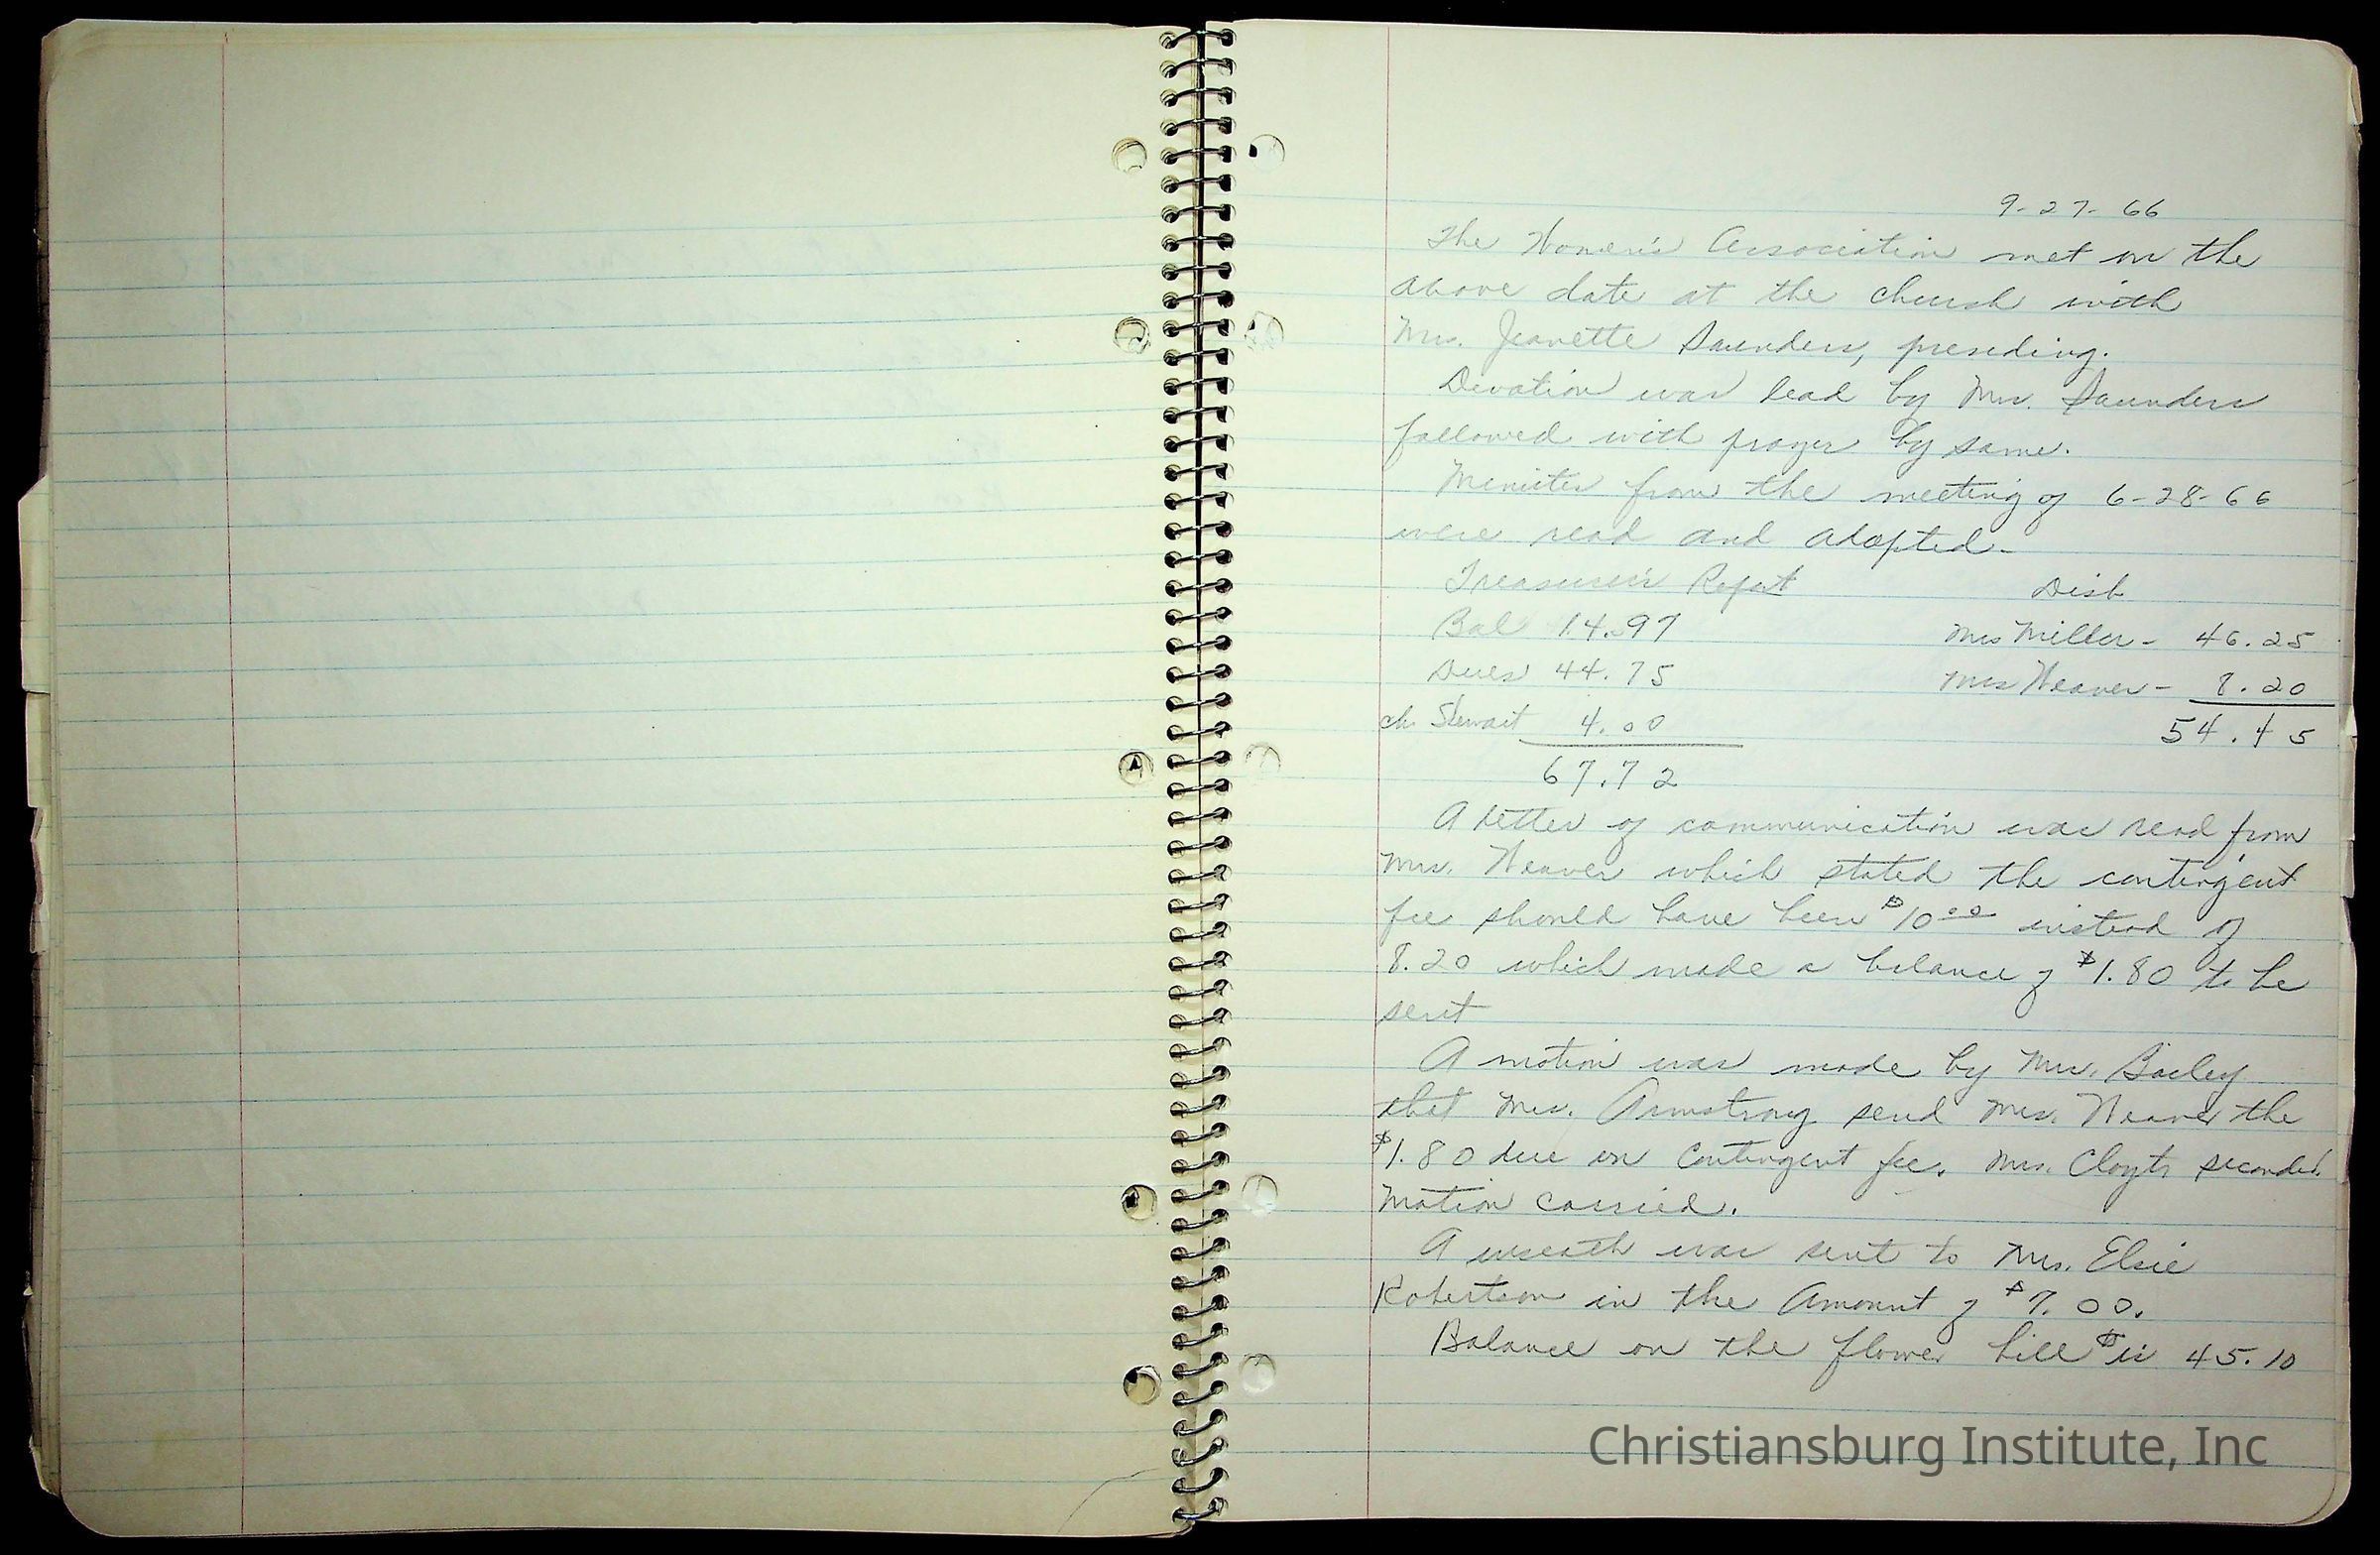 9-27-66
The Women's Association met on the
above date at the church with
Mrs. Jeanette Saunders, preseding.
Devotion was lead by Mrs. Saunders
followed with prayer by same.
Minutes from the meeting of 6-28-66
were read and adopted.
Treasurer's Report Disb
Bal 14.97 Mrs Miller - 46.25
Dues 44.75 Mrs Weaver - 8.20
ch. Stewart 4.00 54.45
67.72
A letter of communication was read from
Mrs. Weaver which stated the contingent
fee should have been $10.00 instead of
8.20 which made a balance of $1.80 to be
sent
A motion was made by Mrs. Bailey
that Mrs. Armstrong send Mrs. Weaver the
$1.80 due on Contingent fee. Mrs. Cloyts seconded.
Motion carried.
A wreath was sent to Mrs. Elsie
Robertson in the Amount of $7.00.
Balance on the flower bill $is 45.10
Christiansburg Institute, Inc